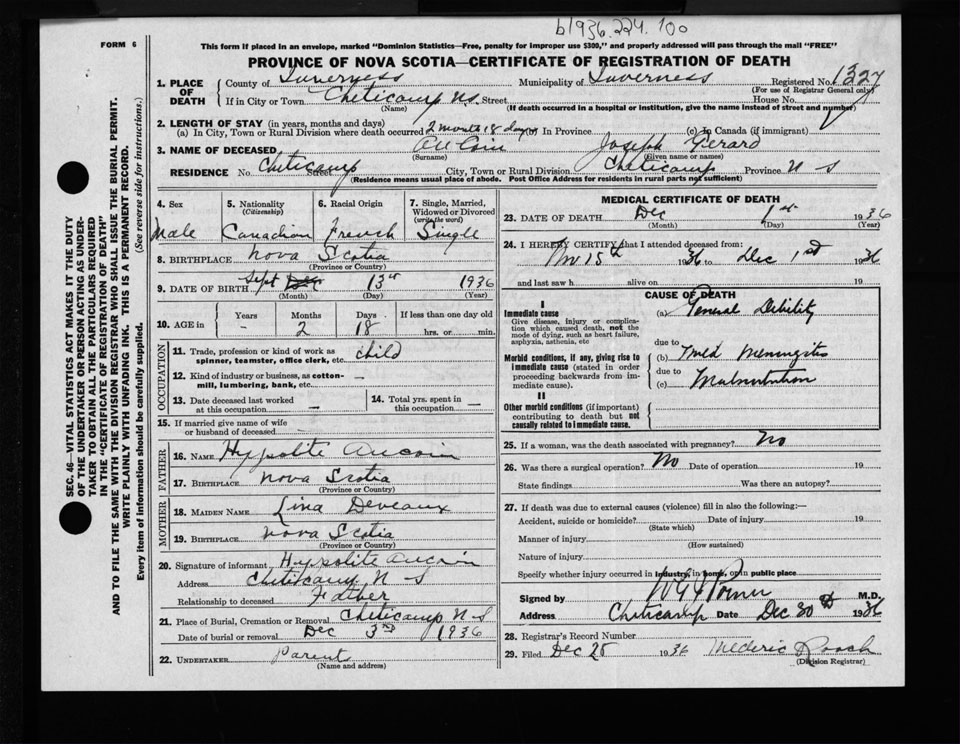 b1936.224.100
FORM 6
This form if placed in an envelope, marked "Dominion Statistics—Free, penalty for improper use $300," and properly addressed will pass through the mail "FREE"
PROVINCE OF NOVA SCOTIA—CERTIFICATE OF REGISTRATION OF DEATH
1. PLACE OF DEATH County of Inverness Municipality of Inverness Registered No. 1327
(For use of Registrar General only)
If in City or Town Cheticamp N.S. Street House No.
(Name) (If death occurred in a hospital or institution, give the name instead of street and number)
2. LENGTH OF STAY (in years, months and days)
(a) In City, Town or Rural Division where death occurred 2 months 18 days (b) In Province (c) In Canada (if immigrant)
3. NAME OF DECEASED Au Coin Joseph Gerard
(Surname) (Given name or names)
RESIDENCE No. Cheticamp Street City, Town or Rural Division Cheticamp Province N S
(Residence means usual place of abode. Post Office Address for residents in rural parts not sufficient)
SEC. 46—VITAL STATISTICS ACT MAKES IT THE DUTY
OF THE UNDERTAKER OR PERSON ACTING AS UNDER-
TAKER TO OBTAIN ALL THE PARTICULARS REQUIRED
IN THE "CERTIFICATE OF REGISTRATION OF DEATH"
AND TO FILE THE SAME WITH THE DIVISION REGISTRAR WHO SHALL ISSUE THE BURIAL PERMIT.
WRITE PLAINLY WITH UNFADING INK. THIS IS A PERMANENT RECORD.
Every item of information should be carefully supplied. (See reverse side for instructions.)
4. Sex Male
5. Nationality (Citizenship) Canadian
6. Racial Origin French
7. Single, Married, Widowed or Divorced (write the word) Single
8. BIRTHPLACE Nova Scotia
(Province or Country)
9. DATE OF BIRTH Sept Dec 13 1936
(Month) (Day) (Year)
10. AGE in Years - Months 2 Days 18 If less than one day old hrs. or min.
OCCUPATION
11. Trade, profession or kind of work as spinner, teamster, office clerk, etc. child
12. Kind of industry or business, as cotton-mill, lumbering, bank, etc. —
13. Date deceased last worked at this occupation —
14. Total yrs. spent in this occupation —
15. If married give name of wife or husband of deceased —
FATHER
16. NAME Hypolite Aucoin
17. BIRTHPLACE Nova Scotia
(Province or Country)
MOTHER
18. MAIDEN NAME Lina Deveaux
19. BIRTHPLACE Nova Scotia
(Province or Country)
20. Signature of informant Hypolite Aucoin
Address Cheticamp N S
Relationship to deceased Father
21. Place of Burial, Cremation or Removal Cheticamp N S
Date of burial or removal Dec 3rd 1936
22. UNDERTAKER Parents
(Name and address)
MEDICAL CERTIFICATE OF DEATH
23. DATE OF DEATH Dec 1st 1936
(Month) (Day) (Year)
24. I HEREBY CERTIFY that I attended deceased from:
Nov 15th 1936 to Dec 1st 1936
and last saw h alive on 19
CAUSE OF DEATH
I
Immediate cause
Give disease, injury or complication which caused death, not the mode of dying, such as heart failure, asphyxia, asthenia, etc
(a) General Debility
due to
Morbid conditions, if any, giving rise to immediate cause (stated in order proceeding backwards from immediate cause).
(b) Meningitis
due to
(c) Malnutrition
II
Other morbid conditions (if important) contributing to death but not causally related to immediate cause.
25. If a woman, was the death associated with pregnancy? No
26. Was there a surgical operation? No Date of operation 19
State findings Was there an autopsy?
27. If death was due to external causes (violence) fill in also the following:—
Accident, suicide or homicide? Date of injury 19
(State which)
Manner of injury
(How sustained)
Nature of injury
Specify whether injury occurred in industry, in home, or in public place
Signed by M.D.
Address Cheticamp Date Dec 30 1936
28. Registrar's Record Number
29. Filed Dec 28 1936 Mederic Roach
(Division Registrar)